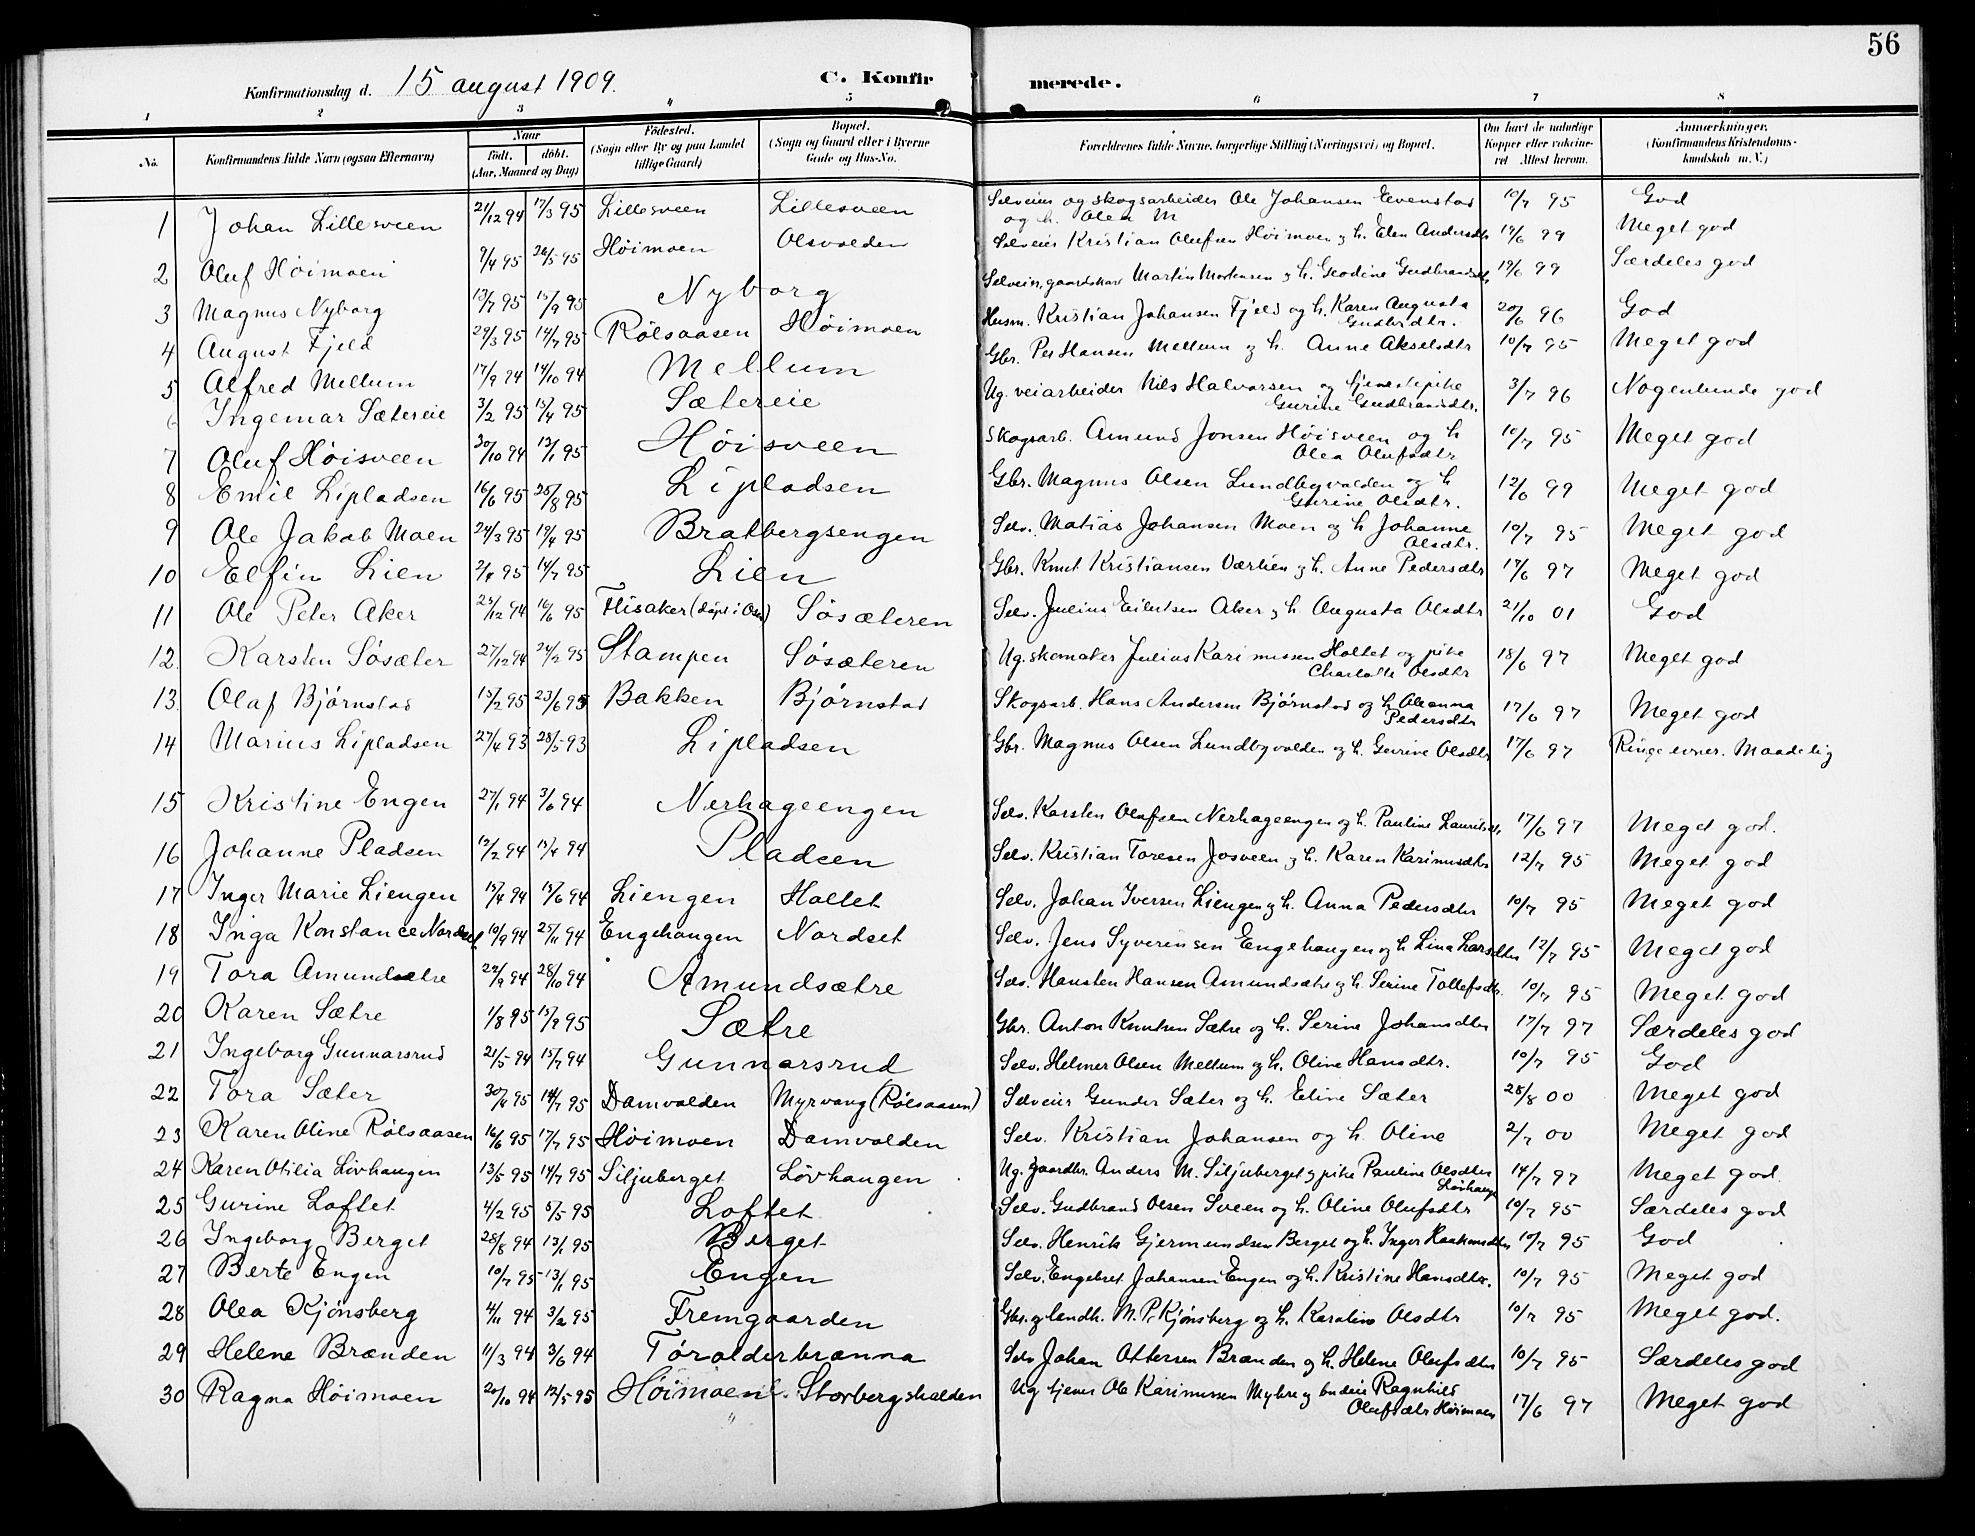 56
Konfirmationsdag d. 15 august 1909.
C. Konfirmerede.
1 2 3 4 5 6 7 8
No.
Konfirmandens fulde Navn (ogsaa Efternavn)
Naar
født. døbt.
(Aar, Maaned og Dag)
Fødested.
(Sogn eller By og paa Landet
tillige Gaard)
Bopæl.
(Sogn og Gaard eller i Byerne
Gade og Hus-No.
Forældrenes fulde Navne, borgerlige Stilling (Næringsvei) og Bopæl.
Om havt de naturlige
Kopper eller vakcine-
ret Attest herom.
Anmærkninger.
(Konfirmandens Kristendoms-
kundskab m. V.)
1 Johan Lillesveen 21/12 94 17/3 95 Lillesveen Lillesveen Selveier og skogsarbeider Ole Johansen Evenstad 10/7 95 God
og h. Olea M
2 Oluf Høimoen 9/4 95 26/5 95 Høimoen Olsvolden Selveier Kristian Olufsen Høimoen og h. Elen Andersdtr 19/6 99 Meget god
3 Magnus Nyborg 13/7 95 15/9 95 Nyborg Selveier, gaardskar Martin Mortensen og h. Gudbrandsdtr 19/6 99 Særdeles god
4 August Fjeld 29/3 95 14/7 95 Rølsaasen Høimoen Husm. Kristian Johansen Fjeld og h. Karen Augusta 20/6 96 God
Gudbrdtr.
5 Alfred Mellum 17/9 94 14/10 94 Mellum Gbr. Per Hansen Mellum og h. Anne Akselsdtr 10/7 95 Meget god
6 Ingemar Sætereie 3/2 95 15/4 95 Sætereie Ug. veiarbeider Nils Halvorsen og tjenestepike 3/7 96 Nogenlunde god
Gurine Gudbrandsdtr.
7 Oluf Høisveen 30/10 94 13/1 95 Høisveen Skogsarb. Amund Jonsen Høisveen og h 10/7 95 Meget god
Olea Olufsdtr
8 Emil Lipladsen 16/6 95 25/8 95 Lipladsen Gbr. Magnus Olsen Lundbyvolden og h 12/6 99 Meget god
Gurine Olsdtr.
9 Ole Jakob Moen 24/3 95 15/4 95 Bratbergsengen Selv. Matias Johansen Moen og h Johanne 10/7 95 Meget god
Olsdtr.
10 Elfin Lien 2/4 95 14/7 95 Lien Gbr. Knut Kristiansen Værlien og h. Anne Pedersdtr 17/6 97 Meget god
11 Ole Peter Aker 25/12 94 16/6 95 Flisaker (døpt i Osen) Søsæteren Selv. Julius Eilertsen Aker og h. Augusta Olsdtr 21/10 01 God
12. Karsten Søsæter 27/12 94 24/2 95 Stampen Søsæteren Ug. skomaker Julius Karimussen Holtet og pike 18/6 97 Meget god
Charlotte Olsdtr
13. Olaf Bjørnstad 15/2 95 23/6 95 Bakken Bjørnstad Skogsarb. Hans Andersen Bjørnstad og h Oleanna 17/6 97 Meget god
Pedersdtr
14 Marius Lipladsen 27/4 93 28/5 93 Lipladsen Gbr. Magnus Olsen Lundbyvolden og h. Gurine Olsdtr 17/6 97 Ringe evner. Maadelig
15 Kristine Engen 27/1 94 3/6 94 Nerhageengen Selv. Karsten Olufsen Nerhageengen og h. Pauline Lauritsdtr 17/6 97 Meget god.
16 Johanne Pladsen 12/2 94 15/4 94 Pladsen Selv. Kristian Toresen Josveen og h. Karen Karimusdtr 12/7 95 Meget god
17 Inger Marie Liengen 15/4 94 13/6 94 Liengen Holtet Selv. Johan Iversen Liengen og h. Anna Pedersdtr 10/7 95 Meget god
18 Inga Konstance Nordset 10/9 94 25/11 94 Engehaugen Nordset Selv. Jens Syverinsen Engehaugen og h Lina Larsdtr 12/7 95 Meget god
19 Tora Amundsætre 22/9 94 28/10 94 Amundsætre Selv. Hansten Hansen Amundsætre og h. Serine Tollefsdtr. 10/7 95 Meget god
20 Karen Sætre 1/8 95 15/9 95 Sætre Gbr. Anton Knutsen Sætre og h. Serine Johansdtr 17/7 97 Særdeles god
21 Ingeborg Gunnarsrud 21/5 94 15/7 94 Gunnarsrud Selv. Helmer Olsen Mellum og h. Oline Hansdtr. 10/7 95 God
22 Tora Sæter 30/4 95 14/7 95 Damvolden Myrvang (Rølsaasen) Selveier Gunder Sæter og h. Eline Sæter 28/8 00 Meget god
23 Karen Oline Rølsaasen 16/6 95 17/7 95 Høimoen Damvolden Selv. Kristian Johansen og h. Oline 2/7 00 Meget god
24 Karen Otilia Løvhaugen 13/5 95 14/7 95 Siljuberget Løvhaugen Ug. gaardbr. Anders M. Siljuberget og pike Pauline Olsdtr 14/7 97 Meget god.
Løvhaugen
25 Gurine Loftet 4/2 95 5/5 95 Loftet Selv. Gudbrand Olsen Sveen og h. Oline Olufsdtr 10/7 95 Særdeles god
26 Ingeborg Berget 28/8 94 13/1 95 Berget Selv. Henrik Gjermundsen Berget og h. Inger Haakonsdtr 10/7 95 God
27 Berte Engen 10/7 95 13/1 95 Engen Selv. Engebret Johansen Engen og h. Kristine Hansdtr. 10/7 95 Meget god
28 Olea Kjønsberg 4/11 94 3/2 95 Fremgaarden Gbr. og landh. M. P. Kjønsberg og h. Karoline Olsdtr 10/7 95 Meget god.
29 Helene Brænden 11/3 94 3/6 94 Toralderbrænna Selv Johan Ottersen Brænden og h. Helene Olufsdtr 10/7 95 Særdeles god
30 Ragna Høimoen 20/10 94 12/5 95 Høimoen Storbergshalden Ug tjener Ole Karimussen Myhre og budeie Ragnhild 17/6 97 Meget god
Olufsdtr Høimoen